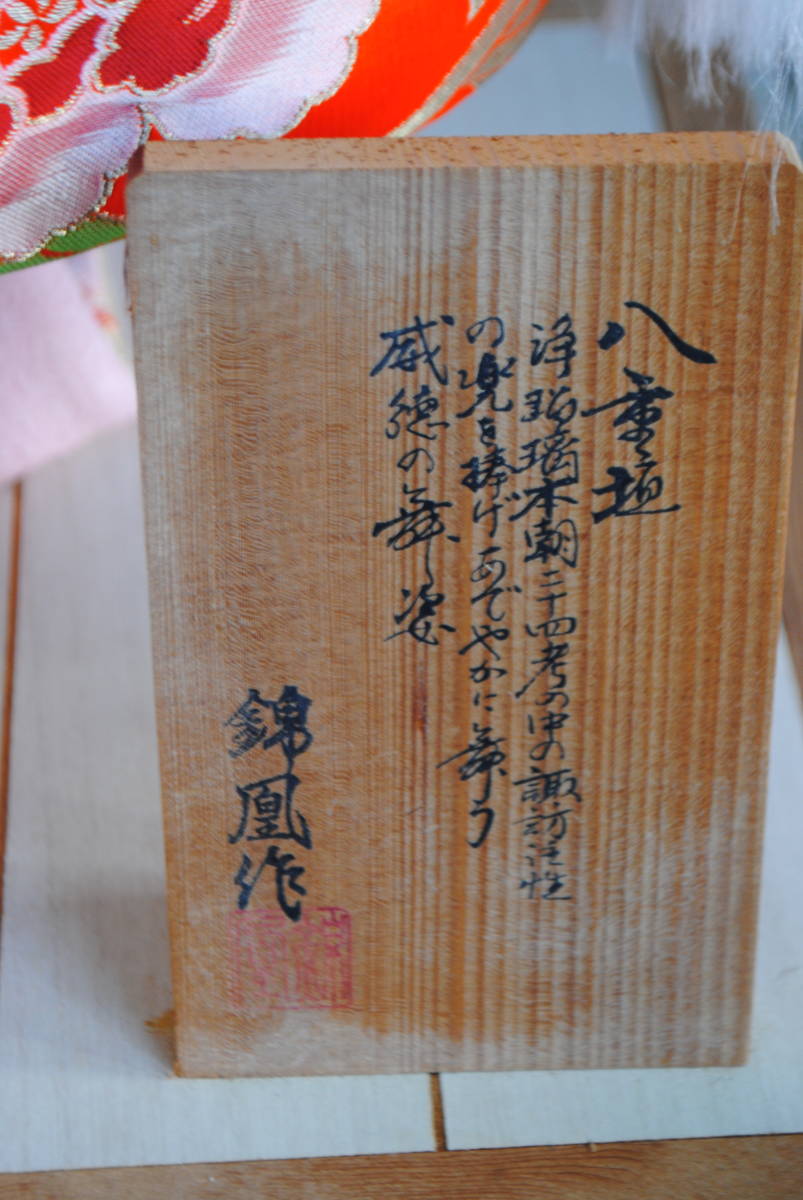 八重垣
浄瑠璃本朝二十四考の中の諏訪法性
の兜を捧げあでやかに舞う
威徳の舞姿
錦凰作